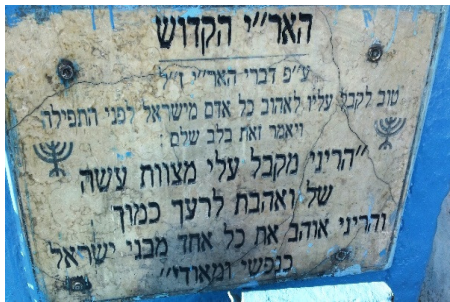 האר״י הקדוש
ע״פ דברי האר״י ז״ל
טוב לקבל עליו לאהוב כל אדם מישראל לפני התפילה
ויאמר זאת בלב שלם :
״הריני מקבל עלי מצוות עשה
של ואהבת לרעך כמוך
והריני אוהב את כל אחד מבני ישראל
כנפשי ומאודי״